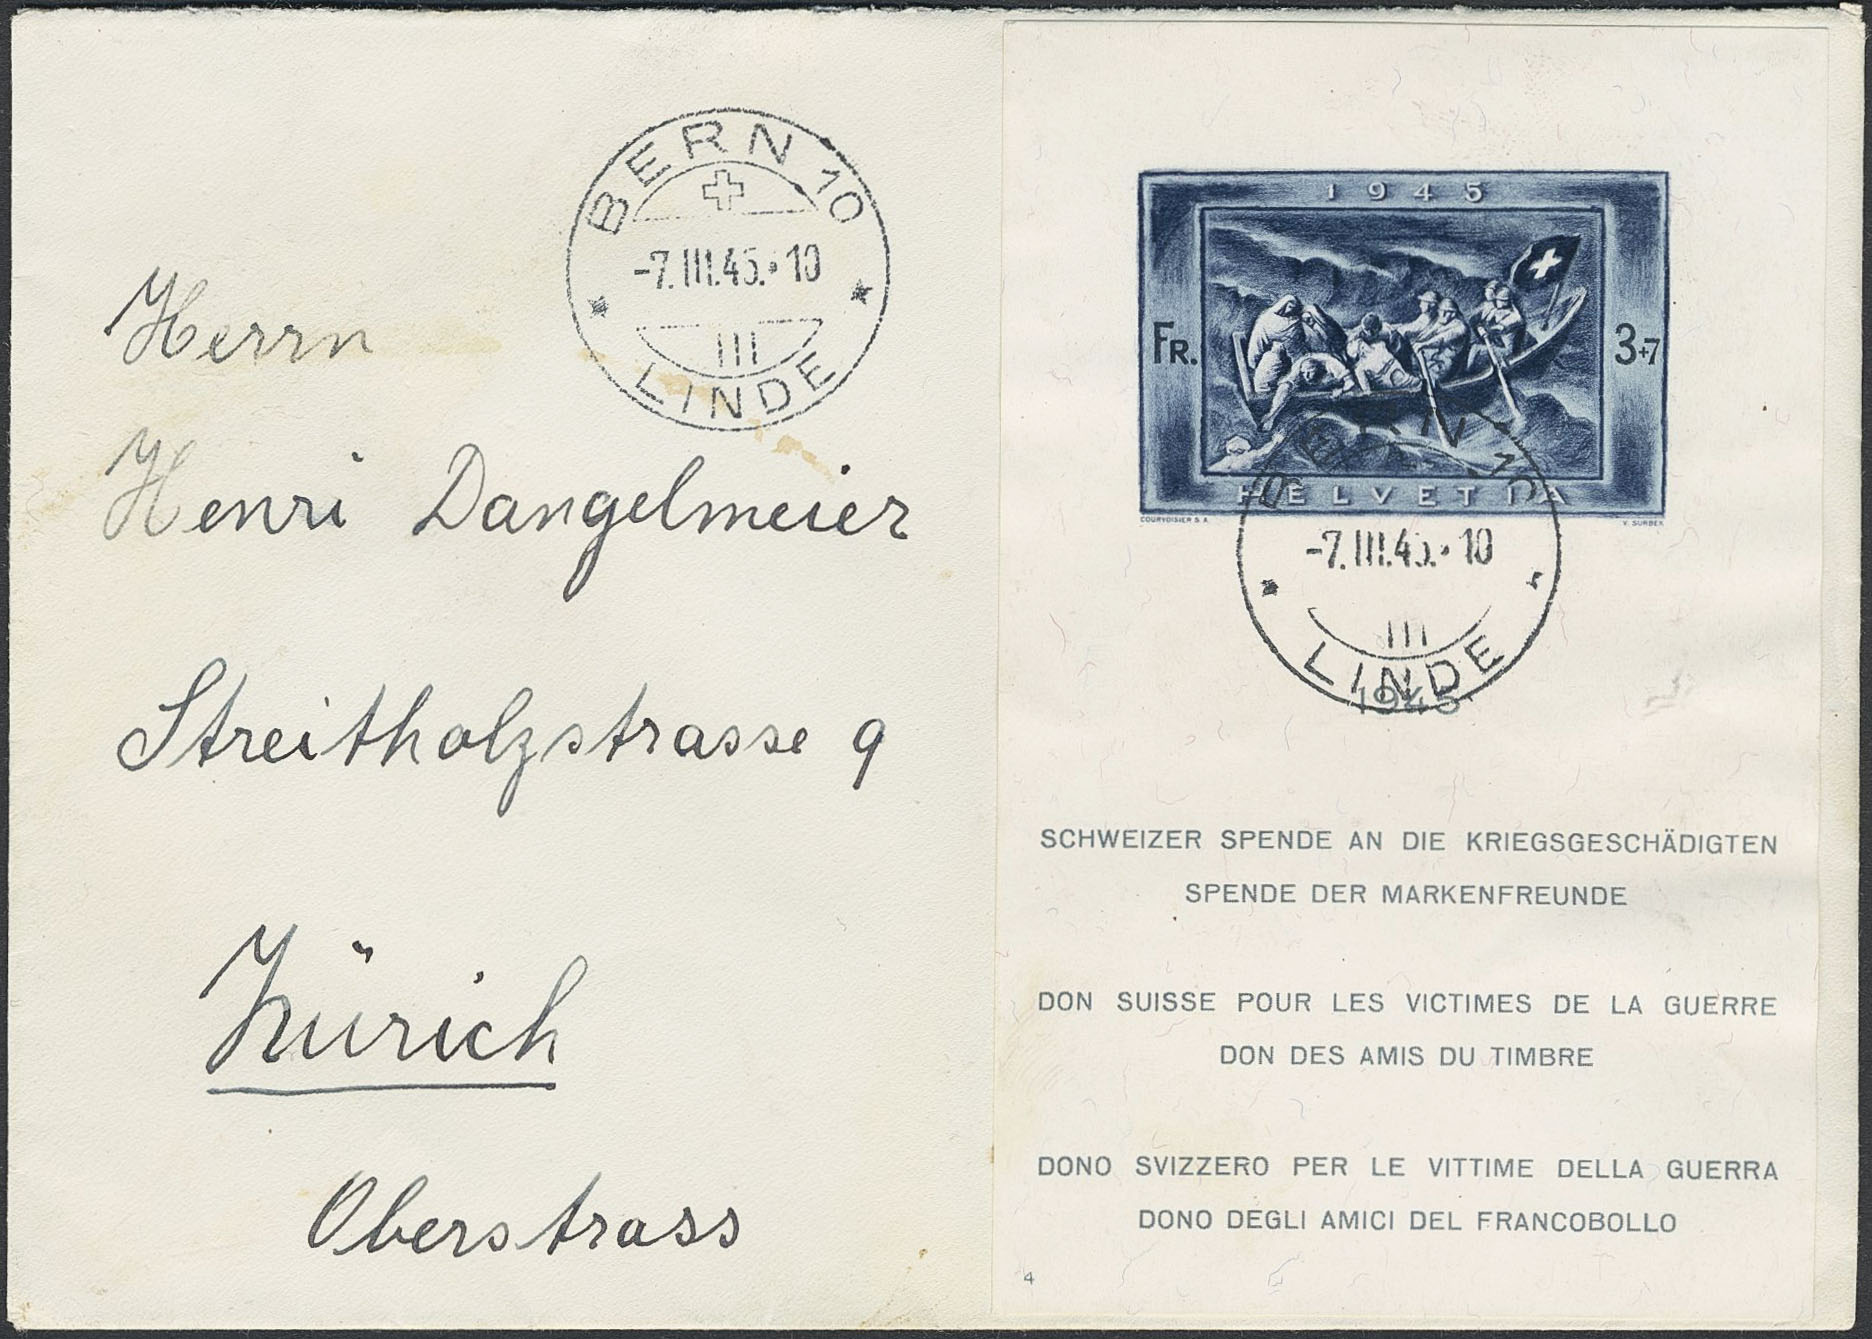 BERN 10
-7.III.45.•10
III
LINDE
Herrn
Henri Dangelmeier
Streitholzstrasse 9
Zürich
Oberstrass
1945
FR.
3+7
HELVETIA
COURVOISIER S.A.
V. SURBEK
BERN 10
-7.III.45.•10
III
LINDE
1945
SCHWEIZER SPENDE AN DIE KRIEGSGESCHÄDIGTEN
SPENDE DER MARKENFREUNDE
DON SUISSE POUR LES VICTIMES DE LA GUERRE
DON DES AMIS DU TIMBRE
DONO SVIZZERO PER LE VITTIME DELLA GUERRA
DONO DEGLI AMICI DEL FRANCOBOLLO
4